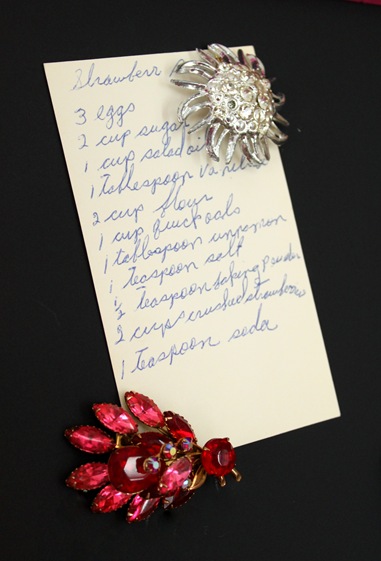 Strawberr
3 eggs
2 cup sugar
1 cup salad oil
1 tablespoon Vanill
2 cup flour
1 cup quick oats
1 tablespoon cinnamon
1 Teaspoon salt
1/2 Teaspoon baking Powder
2 cups crushed strawberries
1 Teaspoon soda